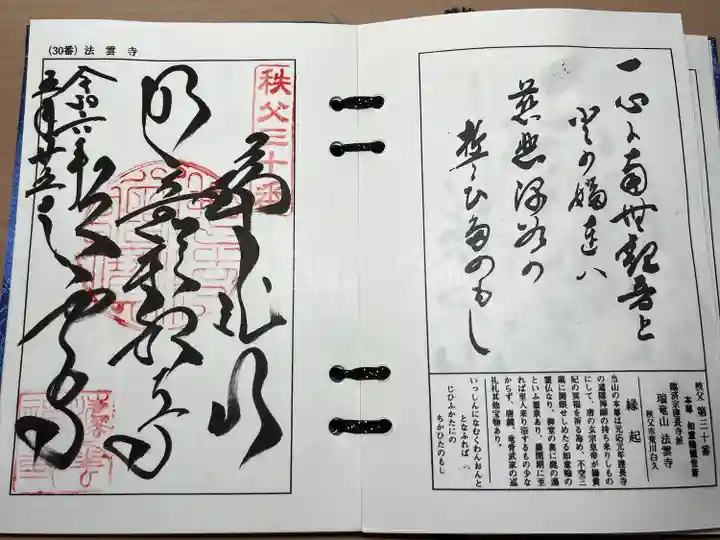 一心に南無観音と
慈悲深谷の
誓ひたのもし
秩父 第三十番
本尊 如意輪観世音
臨済宗建長寺派
瑞竜山 法雲寺
秩父市荒川白久
縁起
当山の本尊は元応元年建長寺
の道隠禅師の持ち来りしもの
にして、唐の玄宗皇帝が楊貴
妃の冥福を祈る為め、不空三
蔵に開眼せしめたる如意輪の
霊仏なり、御堂の奥に鹿の湯
といふ霊泉あり、最開期に至
れば里人来り浴するもの少な
からず、唐鏡、竜骨武家の巡
礼札其他宝物あり。
いっしんになむくわんおんと
となふれば
じひふかたにの
ちかひたのもし
(30番) 法雲寺
秩父三十番
奉拝
法雲寺
令和六年
五月廿五日